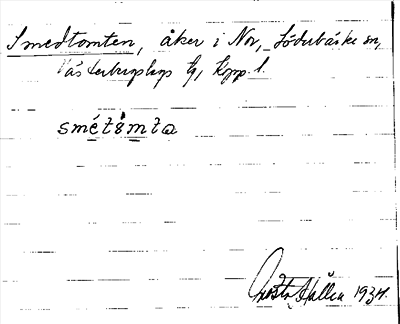 Smedtomten, åker i Nor, Söderbärke sn,
Västerbergslags tg, Kopp. l.
smétåmta
Gösta Hallén 1934.